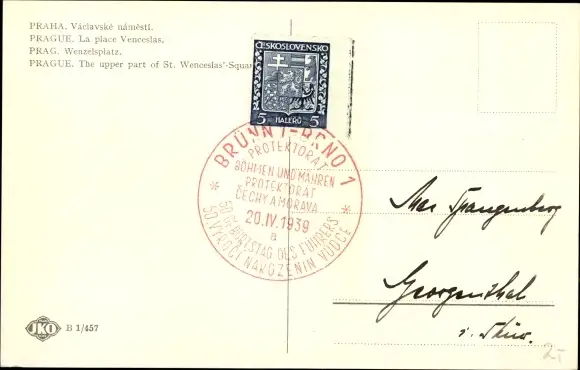 PRAHA. Václavské náměstí.
PRAGUE. La place Venceslas.
PRAG. Wenzelsplatz.
PRAGUE. The upper part of St. Wenceslas'-Squa
ČESKOSLOVENSKO
5 HALÉŘŮ 5
BRÜNN 1-BRNO 1
PROTEKTORAT
BÖHMEN UND MÄHREN
PROTEKTORAT
ČECHY A MORAVA
20.IV.1939
a
50 GEBURTSTAG DES FÜHRERS
50 VÝROČÍ NAROZENIN VŮDCE
Max Spangenberg
Georgenthal
i. Thür.
JKO B 1/457
2.-